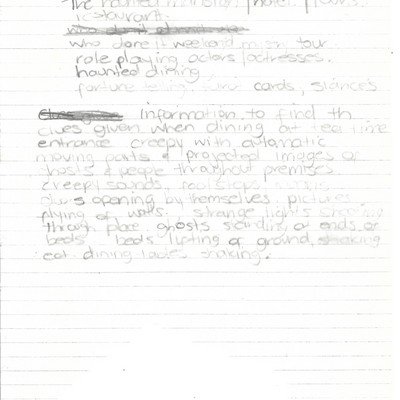 The haunted mansion hotel
restaurant.
who done it weekend tour
role playing actors/actresses.
haunted dining
fortune cards, siances
information to find th
clues given when dining at tea time
entrance creepy with automatic
moving parts & projected images of
ghosts & people throughout premises
creepy sounds, footsteps
opening by themselves pictures
flying of walls, strange lights
through place ghosts standing at ends of
beds beds lifting of ground,
eat dining tables shaking.